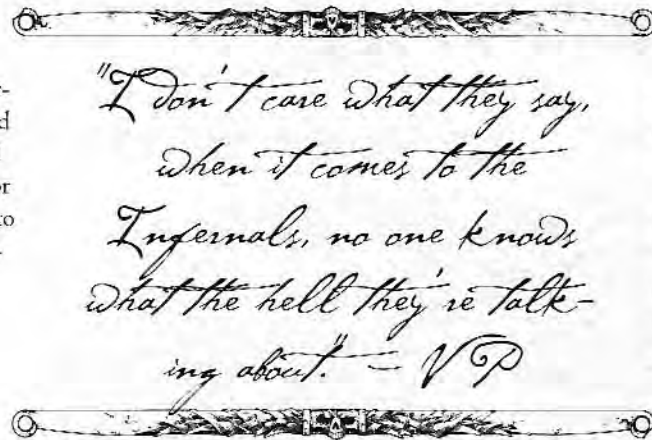 "I don't care what they say,
when it comes to the
Infernals, no one knows
what the hell they're talk-
ing about." – VP